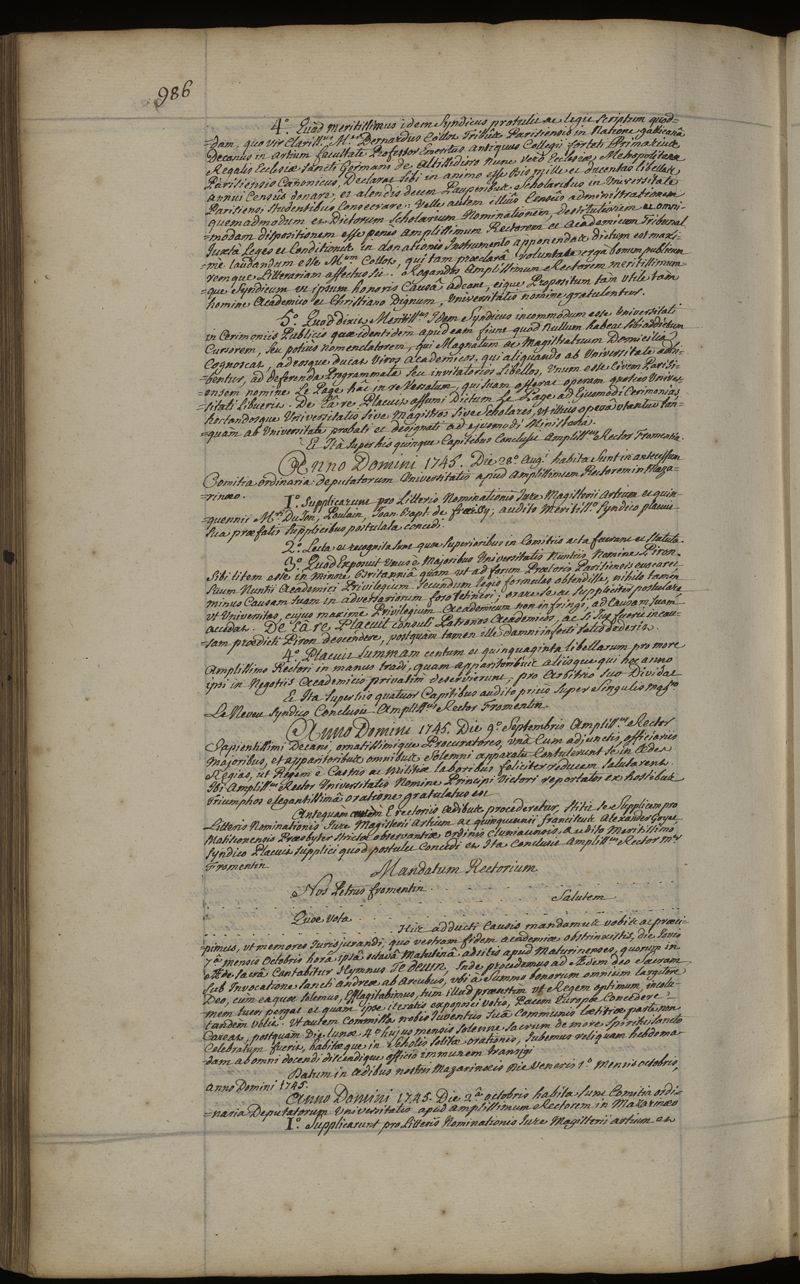 986
4.° Quod meritissimus idem Syndicus protulit ac legit scriptum quod=
=dam, quo vir Clariss.mus M.er Bernardus Collot Tribûs Parisiensis in Natione gallicanâ
Decanus in Artium facultate Professor Emeritus Antiquus Collegii forteti Primarius
Regalis Ecclesiæ Sancti Germani de Altissidoro Nunc verò Ecclesiæ Metropolitanæ
Parisiensis Canonicus, Declarat sibi in animo esse bis mille et ducentas libellas
annui Censûs donare, et alendis decem Pauperibus Scholaribus in Universitate
Parisiensi Studentibus Consecrare: Velle autem illius Censûs administrationem
quemadmodum et Dictorum Scholarium Nominationem, destitutionem et omni=
=modam dispositionem esse penes Amplissimum Rectorem et Academicum Tribunal
Juxta Leges et Conditiones in donationis Instrumento apponendas dictum est maxi=
=me laudandum esse M.um Collot, qui tam præclarâ voluntate ergà bonum publicum
remque Litterariam affectus sit. Rogandos Amplissimum Rectorem meritissimum=
=que Syndicum ut ipsum honoris Causâ adeant, eique Propositum tam utile tam
homine Academico et Christiano Dignum, Universitatis nomine gratulentur.
5.° Quod dixit Meritiss.mus Idem Syndicus incommodum esse Universitati
in Cerimoniis Publicis quæ identidem apud eam fiunt quod Nullum habeat sibi addictum
Cursorem, seu potius nomenclatorem, qui Magnatum ac Magistratuum Domicilia
Cognoscat, ad eosque ducat viros Academicos, qui aliquando ab Universitate adhi=
=bentur, ad deferenda Programmata seu invitatorios Libellos, Unum esse Civem Parisi=
=ensem nomine Le Page hâc in re Versatum, qui suam offerat operam quoties Univer=
sitati Libuerit. De eâ re Placuit assumi Dictum Le Page ad Ejusmodi Cerimonias
hortandosque Universitatis sive Magistros sive Scholares, ut illius operâ utantur tan=
=quam ab Universitate probati et designati ad ejusmodi Ministeria.
Et Ita super his quinque Capitibus Conclusit Ampliss.mus Rector Fromentin.
Anno Domini 1745. Die 28.â Aug.i habita Sunt in antecessum
Comitia ordinaria deputatorum Universitatis apud Amplissimum Rectorem in Maza=
=rinæo.
1.° Supplicarunt pro Litteris Nominationis Jure Magisterii Artium et quin=
=quennii M.ri Du Jon, Poulain, Joan Bapt. de frailly; audito Meritiss.o Syndico placuit
sua præfatis supplicibus postulata concedi.
2.° Lecta et recognita Sunt quæ superioribus in Comitiis acta fuerant et statuta.
3.° Quod Exposuit Unus è Majoribus Universitatis Nuntiis, Nomine Piron,
Sibi litem esse in Minore Britanniâ quam ut ad forum Prætoris Parisiensis evocaret
suum Nuntii Academici Privilegium Secundum legis formulas obtendisse, nihilo tamen
minus Causam suam in adversariorum foro retineri; orare se ac suppliciter postulare
ut Universitas, cujus maximè Privilegium Academicum non infringi, ad Causam suam
accedat. De Eâ re Placuit consuli Patronos Academicos, ac si Ita fuerit in cau=
=sam prædicti Piron descendere, postquam tamen ille damni infecti satis dederit.
4.° Placuit summam centum et quinquaginta libellarum pro more
Amplissimo Rectori in manus tradi, quam apparitoribus aliisque qui hoc anno
ipsi in Negotiis Academicis privatim deservierunt, pro arbitrio suo Dividat
Et Ita super iis quatuor Capitibus audito prius super singulis mag.ro
Le Neveu Syndico Conclusit Ampliss.mus Rector Fromentin
Anno Domini 1745. Die 9.â Septembris Ampliss.mus Rector
Sapientissimi Decani, ornatissimique Procuratores, unà Cum adjunctis officiariis
Majoribus, et apparitoribus omnibus solemni apparatu Contulerunt se in ædes
Regias, ut Regem è Castris ac Militiæ laboribus feliciter reducem salutarent.
Ibi Ampliss.mus Rector Universitatis Nomine Principi Victori reportatos ex hostibus
triumphos elegantissimâ oratione gratulatus est
Antequam E rectoriis ædibus procederetur, stitit se supplicem pro
Litteris Nominationis Jure Magisterii Artium ac quinquennii franciscus Alexander Goyet
Matisconensis Præsbyter Strictæ observantiæ ordinis Cluniacensis, audito Meritissimo
Syndico Placuit supplici quod postulat Concedi et Ita Conclusit Ampliss.mus Rector M.er
Fromentin
Mandatum Rectorium
Nos Petrus fromentin
Salutem
Quæ vota
His adducti Causis mandamus vobis ac præci=
pimus, ut memores Jurisjurandi, quo vestram fidem academiæ obstrinxistis, die Jovis
7.â mensis Octobris horâ ipsâ octavâ Matutinâ adsitis apud Mathurinenses, quorum in
æde sacrâ Cantabitur Hymnus Te deum, Inde procedemus ad ædem deo sacram
sub Invocatione Sancti andreæ ab Arcubus, ubi à Summo bonorum omnium largitore
Deo, cum ea quæ solemus, Efflagitabimus, tum illud præsertim ut Regem optimum, incolu=
mem tueri pergat et quam ipse iteratis exposcit votis, Pacem Europæ Concedere
tandem velit. Ut autem Commissa nobis Juventus suâ Communis lætitiæ parte non
Careat, postquam Die lunæ 4.â hujus mensis Solemne Sacrum de more Spiritui Sancto
Celebratum fuerit, habitæque in Scholis solitæ orationes, Jubemus reliquam hebdoma=
dam ab omni docendi discendique officio immunem transigi
Datum in ædibus nostris Mazarinæis Die Veneris 1.â Mensis octobris,
anno Domini 1745.
Anno Domini 1745. Die 2.â octobris habita Sunt Comitia ordi=
=naria Deputatorum Universitatis apud Amplissimum Rectorem in Mazarinæo
1.° Supplicarunt pro Litteris Nominationis Jure Magisterii artium et